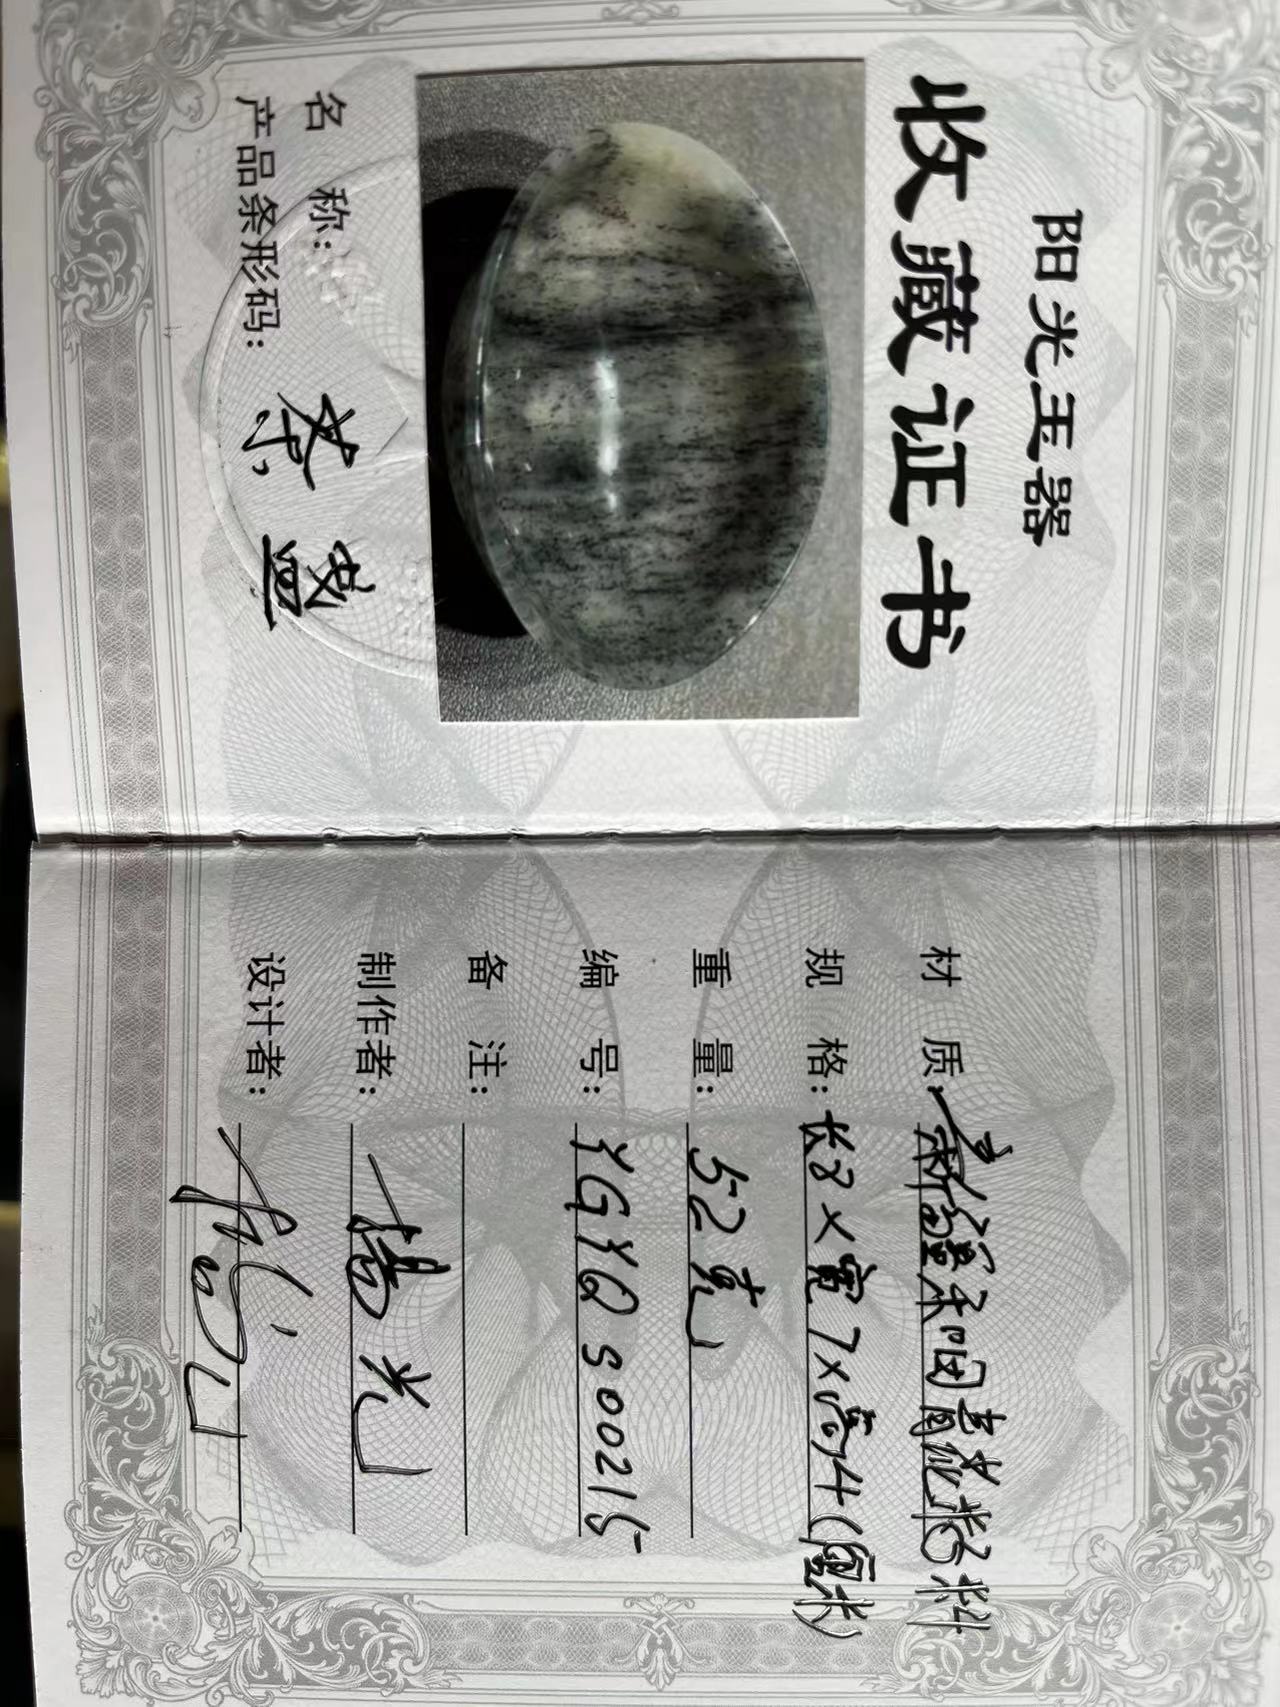 阳光玉器
收藏证书
名 称:
产品条形码:
茶盏
材 质: 新疆和田青花籽料
规 格: 长8×宽7×高4(厘米)
重 量: 52克
编 号: YGYQS00215
备 注:
制作者: 杨光
设计者: